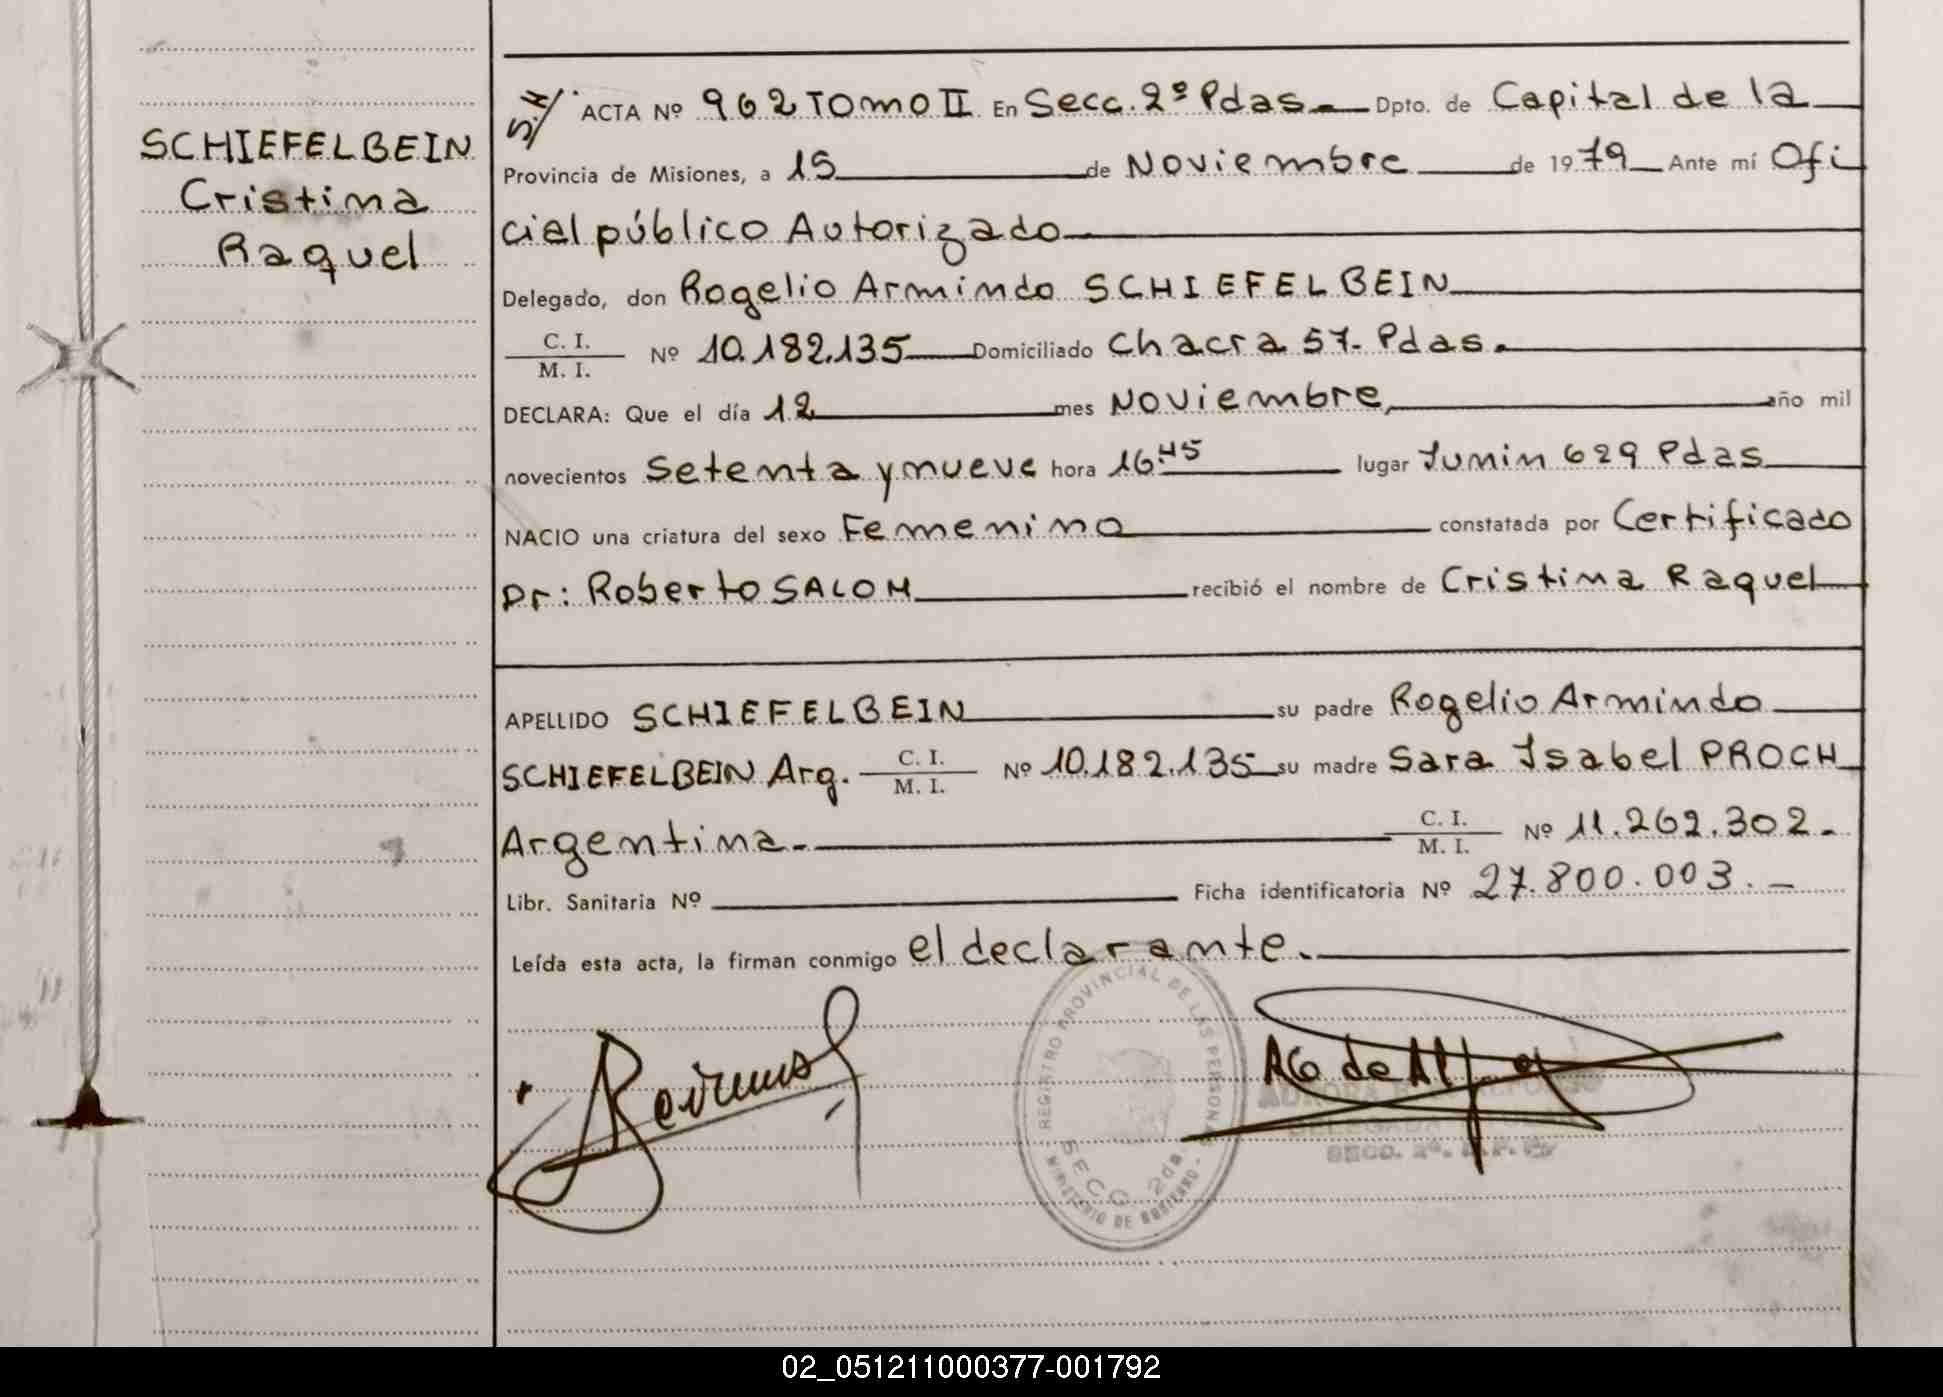 SCHIEFELBEIN
Cristina
Raquel
S.H/. ACTA Nº 962 Tomo II En Secc. 2º Pdas. Dpto. de Capital de la
Provincia de Misiones, a 15 de Noviembre de 1979 Ante mí Ofi
cial público Autorizado
Delegado, don Rogelio Armindo SCHIEFELBEIN
C. I.
M. I. Nº 10.182.135 Domiciliado Chacra 57. Pdas.
DECLARA: Que el día 12 mes Noviembre, año mil
novecientos Setenta y nueve hora 16.45 lugar Junin 629 Pdas
NACIO una criatura del sexo Femenino constatada por Certificado
Dr: Roberto SALOM recibió el nombre de Cristina Raquel
APELLIDO SCHIEFELBEIN su padre Rogelio Armindo
SCHIEFELBEIN Arg. C. I. M. I. Nº 10.182.135 su madre Sara Isabel PROCH
Argentina. C. I. M. I. Nº 11.262.302.
Libr. Sanitaria Nº Ficha identificatoria Nº 27.800.003.
Leída esta acta, la firman conmigo el declarante.
REGISTRO PROVINCIAL DE LAS PERSONAS
SECC 2da.
MINISTERIO DE GOBIERNO
AG de
DELEGADA
SECC. 2ª.
02_051211000377-001792